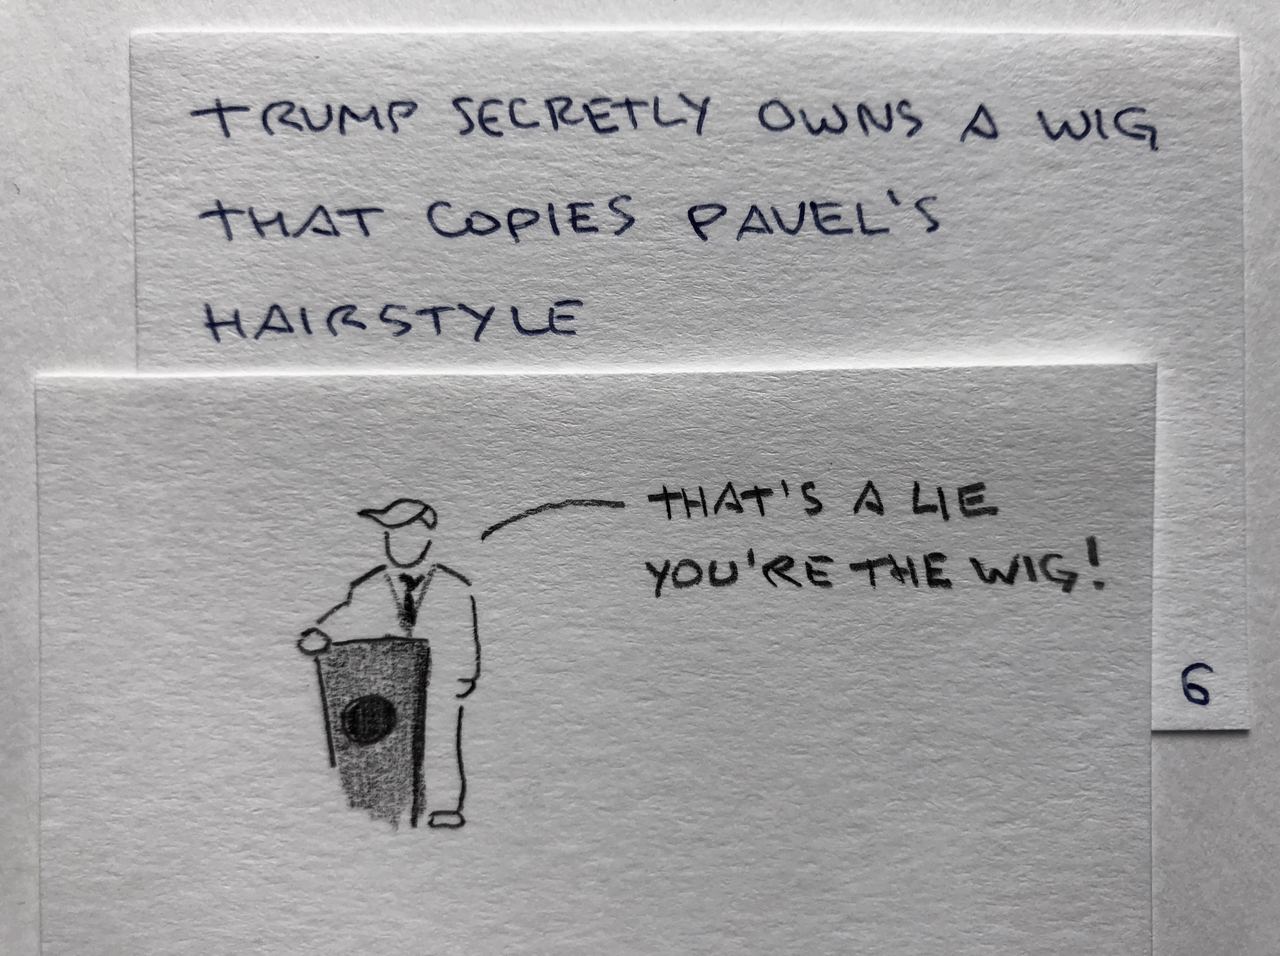 TRUMP SECRETLY OWNS A WIG
THAT COPIES PAVEL'S
HAIRSTYLE
THAT'S A LIE
YOU'RE THE WIG!
6